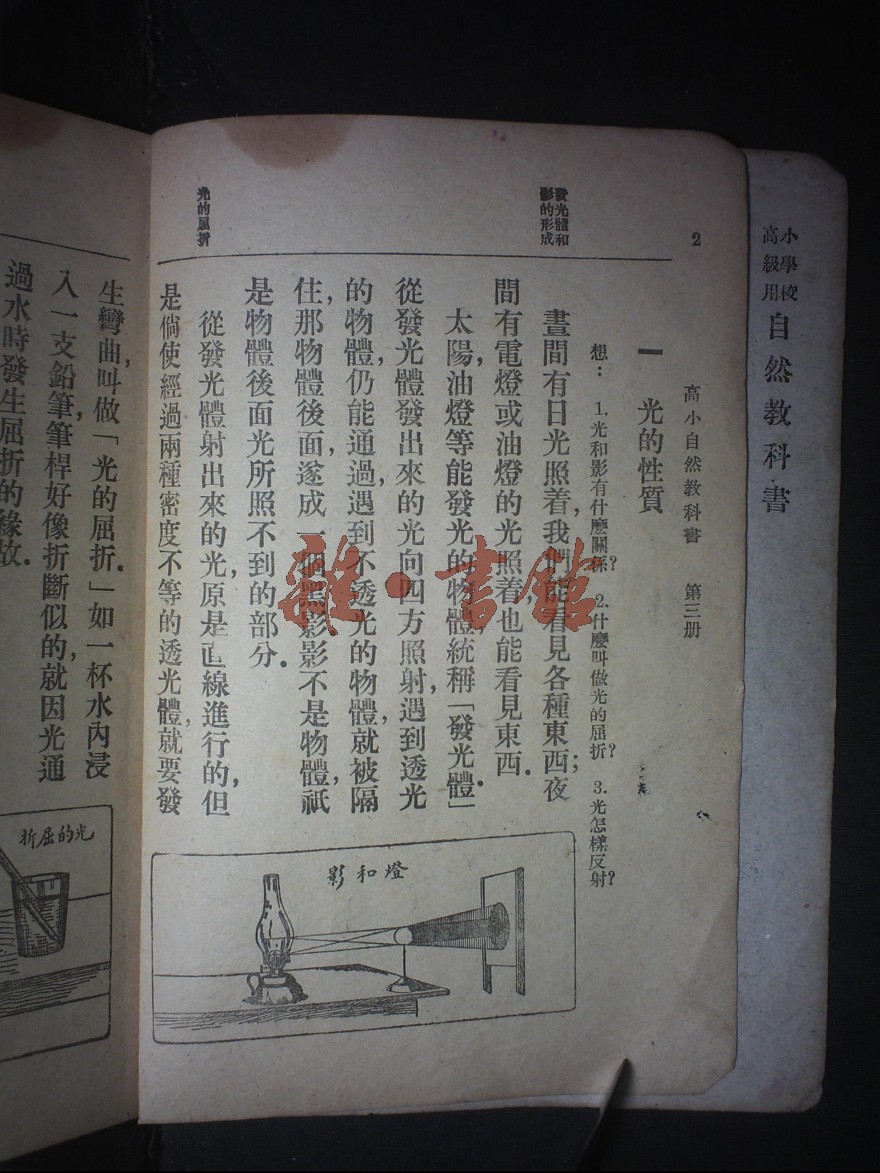 小學校
高級用
自然教科書
2
高小自然教科書　第三册
一　光的性質
想：　1.光和影有什麼關係？　2.什麼叫做光的屈折？　3.光怎樣反射？
發光體和
影的形成
晝間有日光照着，我們能看見各種東西；夜
間有電燈或油燈的光照着，也能看見東西．
太陽，油燈等能發光的物體，統稱「發光體」．
從發光體發出來的光向四方照射，遇到透光
的物體，仍能通過，遇到不透光的物體，就被隔
住，那物體後面，遂成一個黑影．影不是物體，祇
是物體後面光所照不到的部分．
光的屈折
從發光體射出來的光，原是直線進行的，但
是倘使經過兩種密度不等的透光體，就要發
燈和影
生彎曲，叫做「光的屈折．」如一杯水內浸
入一支鉛筆，筆桿好像折斷似的，就因光通
過水時發生屈折的緣故．
光的屈折
雜·書館